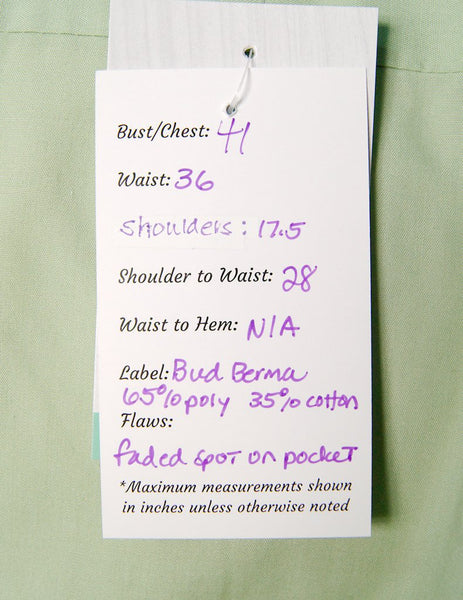 Bust/Chest: 41
Waist: 36
Shoulders: 17.5
Shoulder to Waist: 28
Waist to Hem: N/A
Label: Bud Berma
65% poly 35% cotton
Flaws:
faded spot on pocket
*Maximum measurements shown
in inches unless otherwise noted